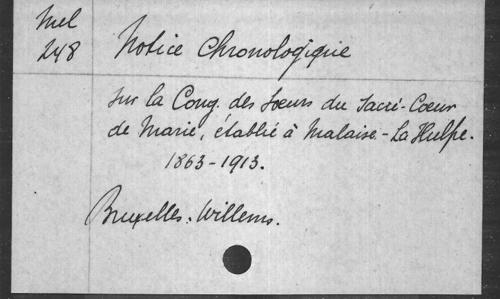 Mel
248
Notice Chronologique
sur la Cong. des Soeurs du Sacré-Coeur
de Marie, établie à Malaise-La Hulpe.
1863-1913.
Bruxelles. Willems.